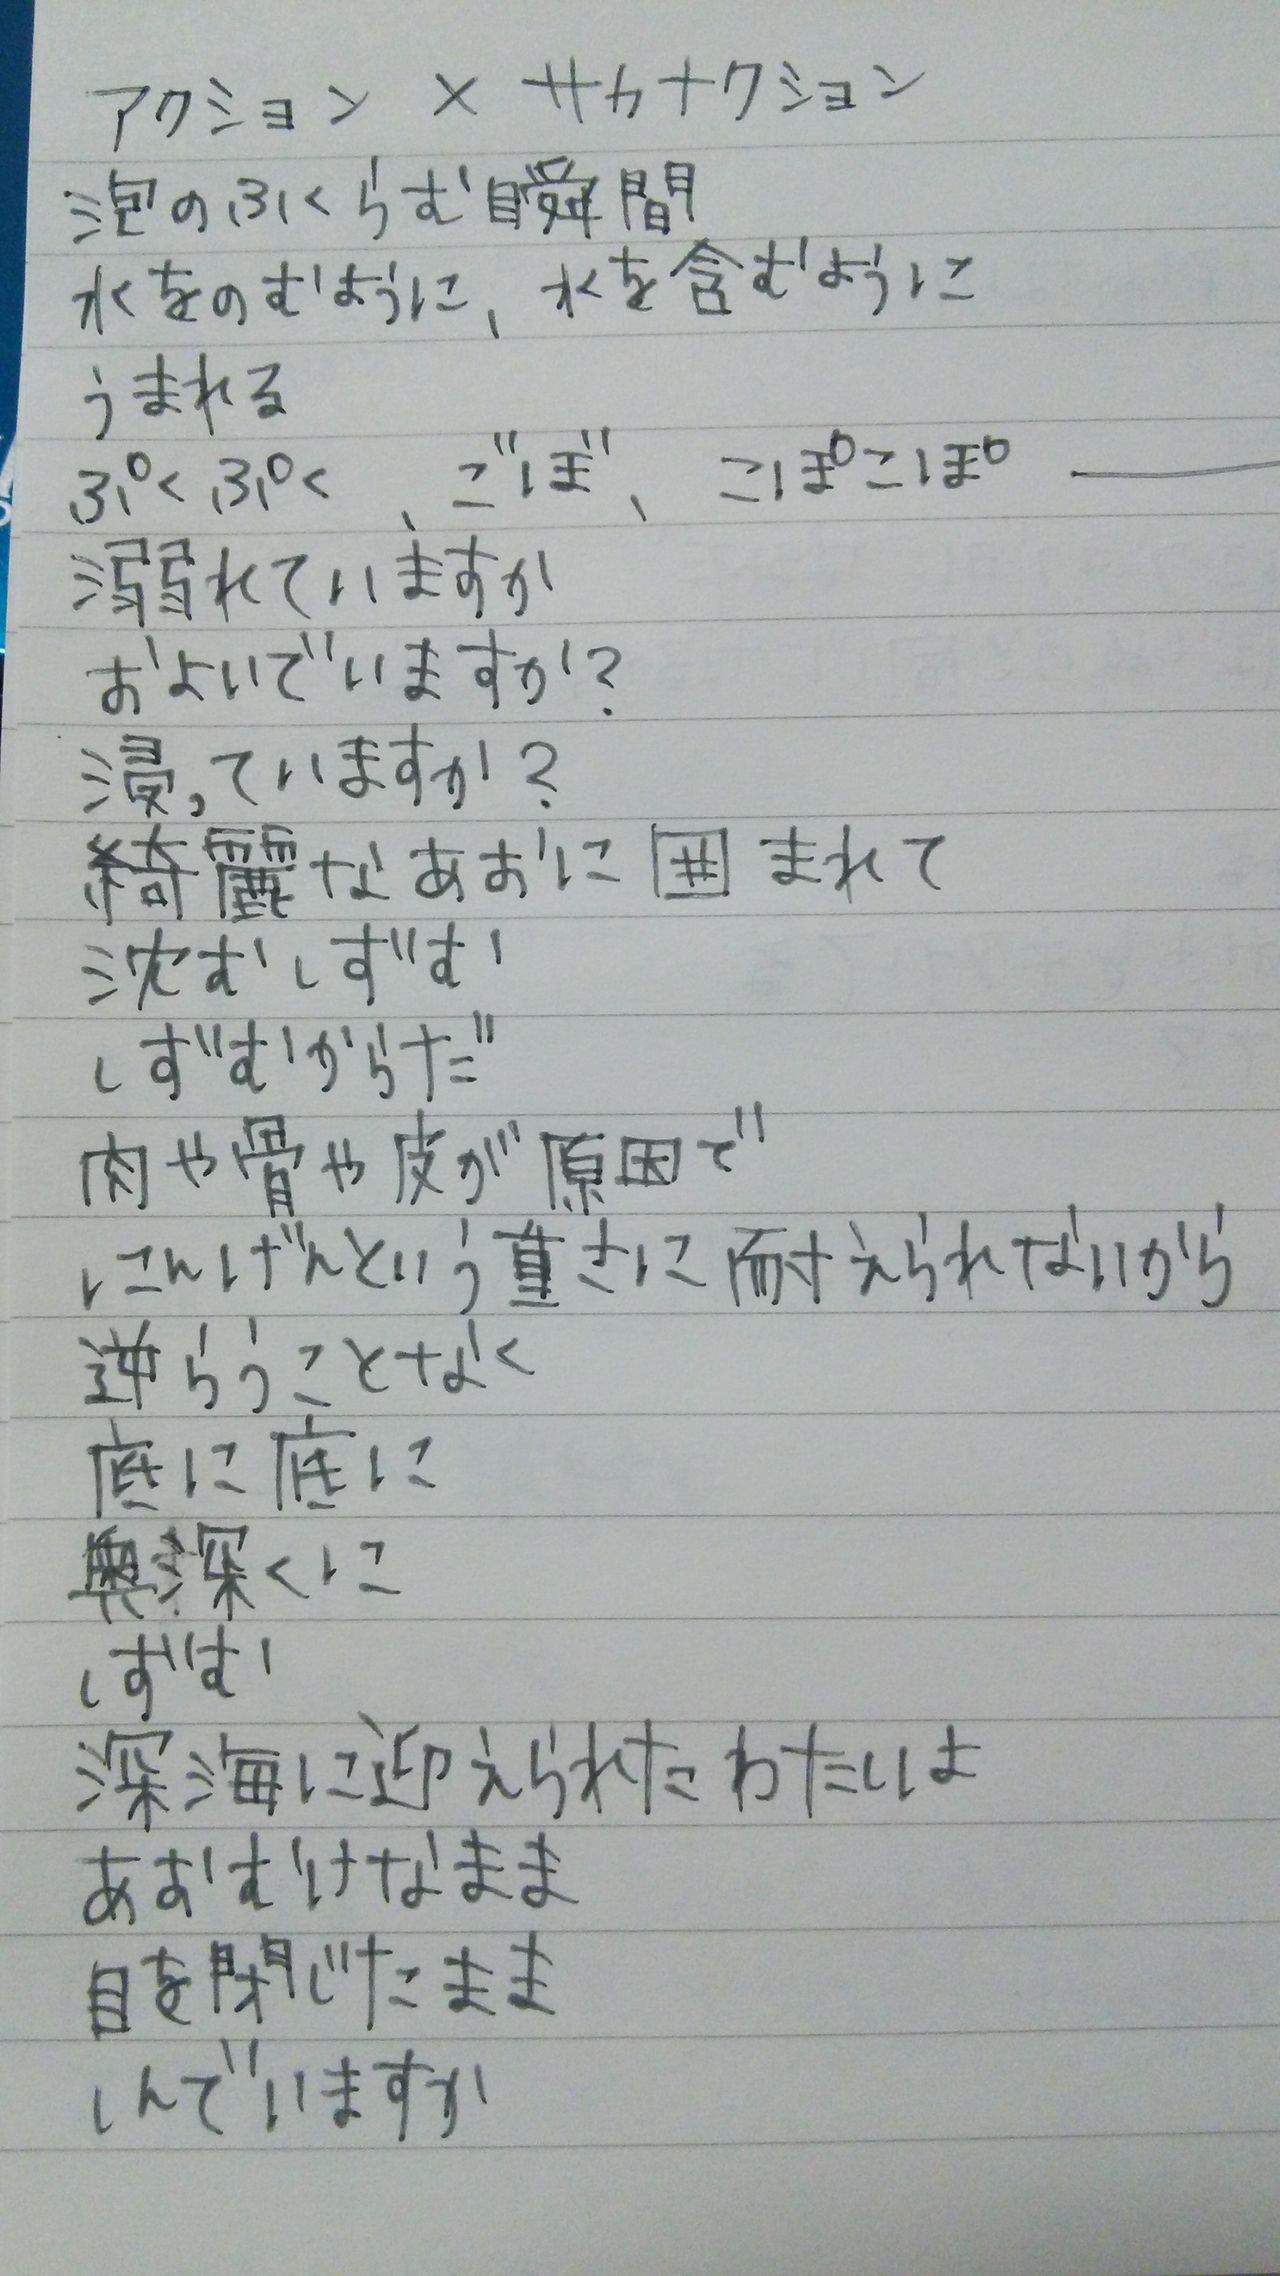 アクション × サカナクション
泡のふくらむ瞬間
水をのむように、水を含むように
うまれる
ぷくぷく、ごぼ、こぽこぽ――
溺れていますか
およいでいますか？
浸っていますか？
綺麗なあおに囲まれて
沈むしずむ
しずむからだ
肉や骨や皮が原因で
にんげんという重さに耐えられないから
逆らうことなく
底に底に
奥深くに
しずむ
深海に迎えられたわたしは
あおむけなまま
目を閉じたまま
しんでいますか